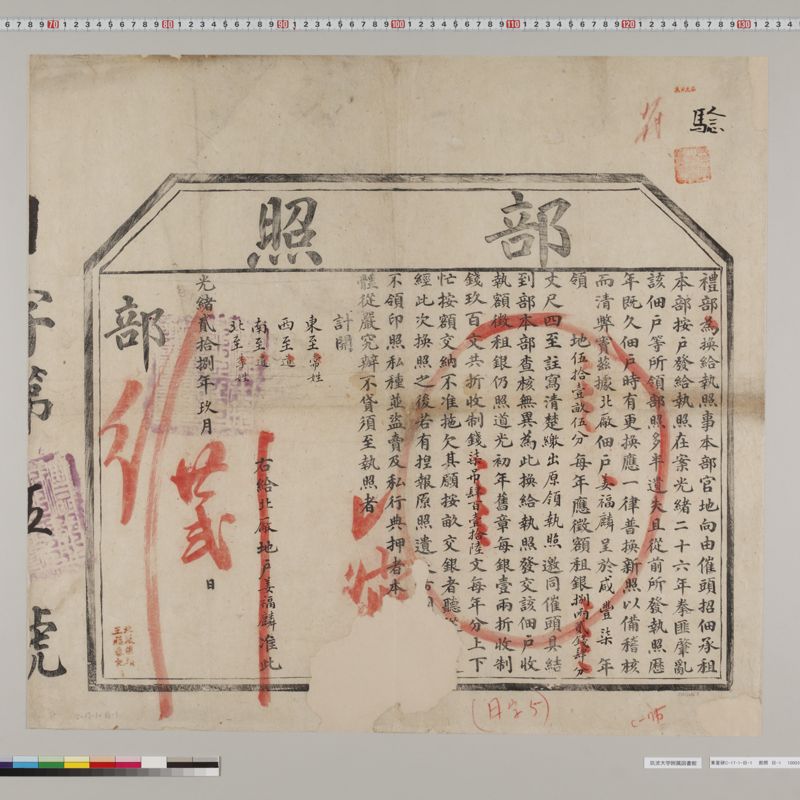 驗
部照
禮部為換給執照事本部官地向由催頭招佃承租
本部按戶發給執照在案光緒二十六年拳匪肇亂
該佃戶等所領部照多半遺失且從前所發執照歷
年既久佃戶時有更換應一律普換新照以備稽核
而清弊竇茲據北廠佃戶姜福麟呈於咸豐柒年
領 地伍拾壹畝伍分每年應徵額租銀捌兩貳錢肆分
丈尺四至註寫清楚繳出原領執照邀同催頭具結
到部本部查核無異為此換給執照發交該佃戶收
執額徵租銀仍照道光初年舊章每銀壹兩折收制
錢玖百文共折收制錢柒吊肆百壹拾陸文每年分上下
忙按額交納不准拖欠其願按畝交銀者聽
經此次換照之後若有捏報原照遺
不領印照私種並盜賣及私行典押者本
體從嚴究辦不貸須至執照者
計開
東至常姓
西至道
南至道
北至李姓
右給北廠地戶姜福麟准此
光緒貳拾捌年玖月 廿貳 日
部
行
日字第 五 號
(日字5)
65 70 80 90 100 110 120 130
筑波大学附属図書館